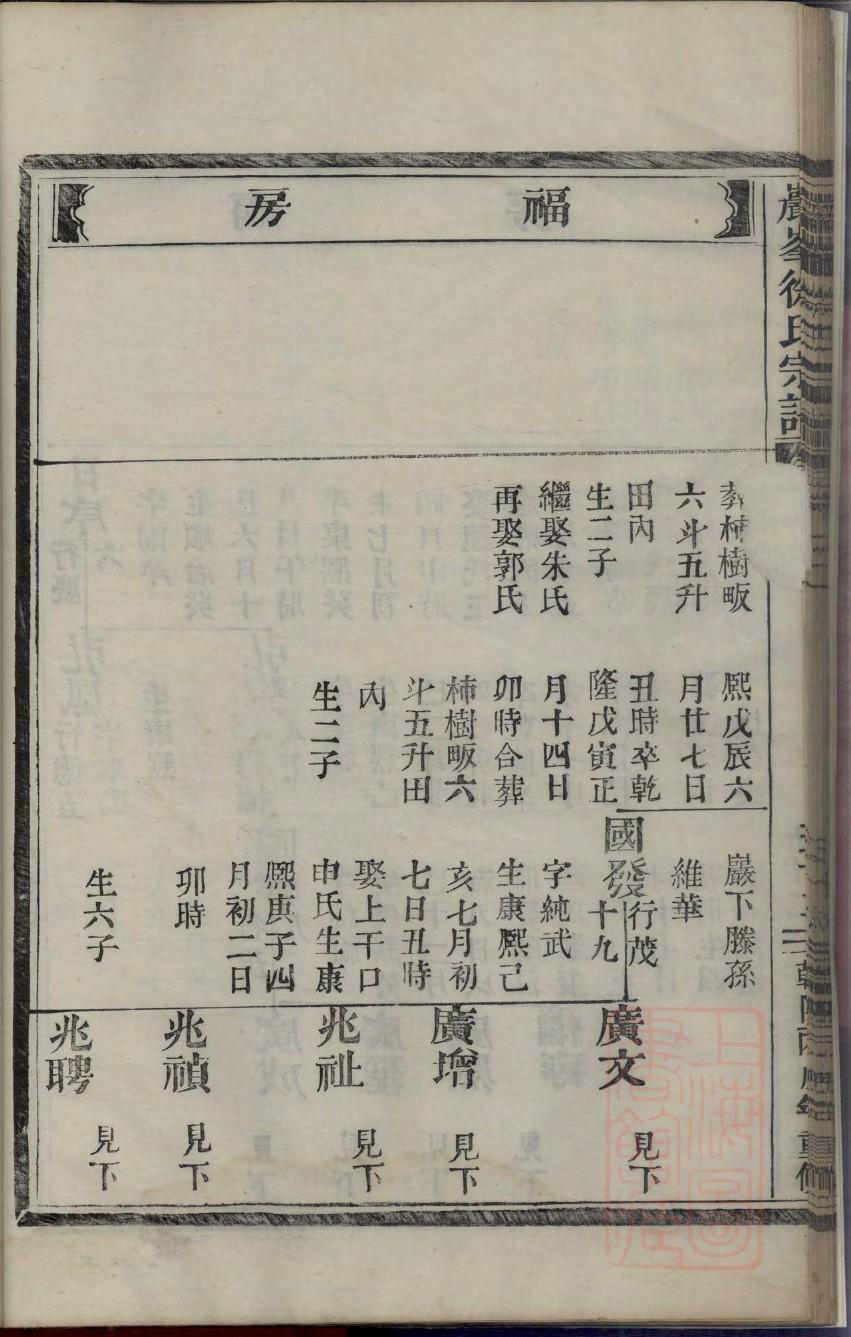 福房
巖峯徐氏宗譜
柹樹畈
六斗五升
田內
生二子
繼娶朱氏
再娶郭氏
熙戊辰六
月廿七日
丑時卒乾
隆戊寅正
月十四日
卯時合葬
柿樹畈六
斗五升田
內
生二子
巖下滕孫
維華
國發
行茂
十九
字純武
生康熙己
亥七月初
七日丑時
娶上干口
申氏生康
熙庚子四
月初二日
卯時
生六子
廣文
見下
廣增
見下
兆祉
見下
兆禎
見下
兆聘
見下
上海圖
書館藏